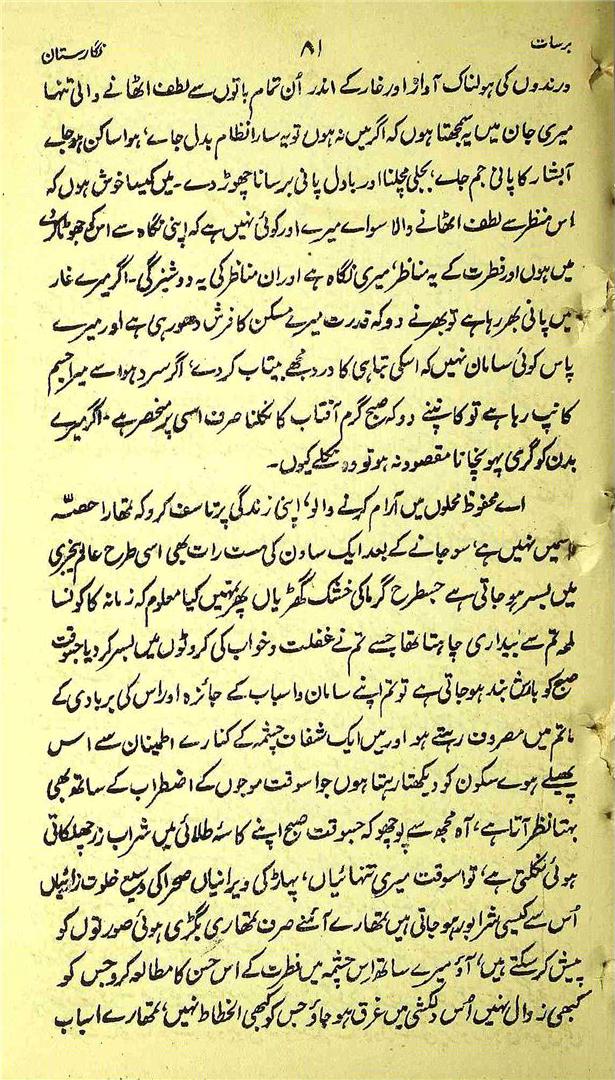 برسات ۸۱ نگارستان
درندوں کی ہولناک آواز اور غار کے اندر اُن تمام باتوں سے لطف اٹھانے والی تنہا
میری جان میں یہ سمجھتا ہوں کہ اگر میں نہ ہوں تو یہ سارا نظام بدل جاے، ہوا ساکن ہو جاے
آبشار کا پانی جم جاے، بجلی مچلنا اور بادل پانی برسانا چھوڑ دے۔ میں کیسا خوش ہوں کہ
اس منظر سے لطف اٹھانے والا سواے میرے اور کوئی نہیں ہے کہ اپنی نگاہ سے اس کو جھوٹا کر دے
میں ہوں اور فطرت کے یہ مناظر، میری نگاہ ہے اور ان مناظر کی یہ دوشیزگی۔ اگر میرے غار
میں پانی بھر رہا ہے تو بھرنے دو کہ قدرت میرے مسکن کا فرش دھو رہی ہے اور میرے
پاس کوئی سامان نہیں کہ اسکی تباہی کا درد مجھے بیتاب کر دے، اگر سرد ہوا سے میرا جسم
کانپ رہا ہے تو کانپنے دو کہ صبح گرم آفتاب کا نکلنا صرف اسی پر منحصر ہے۔ اگر میرے
بدن کو گرمی پہونچانا مقصود نہ ہو تو وہ نکلے کیوں۔
اے محفوظ محلوں میں آرام کرنے والو، اپنی زندگی پر تاسف کرو کہ تمھارا حصّہ
اسمیں نہیں ہے، سو جانے کے بعد ایک ساون کی مست رات بھی اسی طرح عالم بیخبری
میں بسر ہو جاتی ہے جسطرح گرما کی خشک گھڑیاں پھر تمہیں کیا معلوم کہ زمانہ کا کونسا
لمحہ تم سے بیداری چاہتا تھا جسے تم نے غفلت و خواب کی کروٹوں میں بسر کر دیا جسوقت
صبح کو بارش بند ہو جاتی ہے تو تم اپنے سامان و اسباب کے جائزہ اور اس کی بربادی کے
ماتم میں مصروف رہتے ہو اور میں ایک شفاف چشمہ کے کنارے اطمینان سے اس
پھیلے ہوے سکون کو دیکھتا رہتا ہوں جو اسوقت موجوں کے اضطراب کے ساتھ بھی
بہتا نظر آتا ہے، آہ مجھ سے پوچھو کہ جسوقت صبح اپنے کاسۂ طلائی میں شراب زر چھلکاتی
ہوئی نکلتی ہے، تو اسوقت میری تنہائیاں، پہاڑ کی ویرانیاں صحرا کی وسیع خلوت زائیاں
اُس سے کیسی شرابور ہو جاتی ہیں تمھارے آئنے صرف تمھاری بگڑی ہوئی صورتوں کو
پیش کر سکتے ہیں، آؤ میرے ساتھ اس چشمہ میں فطرت کے اس حسن کا مطالعہ کرو جس کو
کبھی زوال نہیں اُس دلکشی میں غرق ہو جاؤ جس کو کبھی انحطاط نہیں، تمھارے اسباب